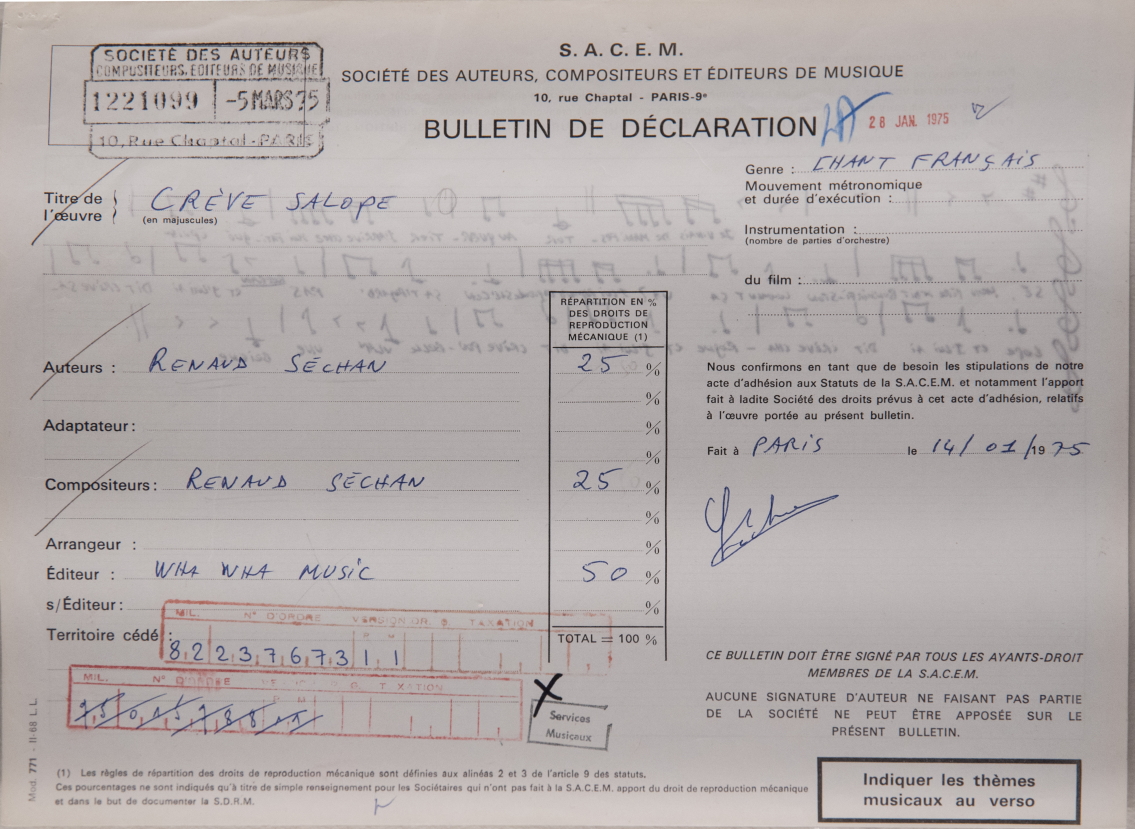 SOCIÉTÉ DES AUTEURS
COMPOSITEURS, EDITEURS DE MUSIQUE
1221099 -5 MARS 75
10, Rue Chaptal - PARIS
S. A. C. E. M.
SOCIÉTÉ DES AUTEURS, COMPOSITEURS ET ÉDITEURS DE MUSIQUE
10, rue Chaptal - PARIS-9e
BULLETIN DE DÉCLARATION
28 JAN. 1975
Genre : CHANT FRANÇAIS
Mouvement métronomique
et durée d'exécution :
Titre de
l'œuvre
CRÈVE SALOPE
(en majuscules)
Instrumentation :
(nombre de parties d'orchestre)
du film :
RÉPARTITION EN %
DES DROITS DE
REPRODUCTION
MÉCANIQUE (1)
Auteurs : RENAUD SÉCHAN 25 %
%
Adaptateur : %
%
Compositeurs : RENAUD SÉCHAN 25 %
%
Arrangeur : %
Éditeur : WHA WHA MUSIC 50 %
s/Éditeur : %
Territoire cédé :
TOTAL = 100 %
Nous confirmons en tant que de besoin les stipulations de notre
acte d'adhésion aux Statuts de la S.A.C.E.M. et notamment l'apport
fait à ladite Société des droits prévus à cet acte d'adhésion, relatifs
à l'œuvre portée au présent bulletin.
Fait à PARIS le 14/01/1975
MIL. N° D'ORDRE VERSION OR. D. TAXATION
P M
8 2 2 3 7 6 7 3 1 1
MIL. N° D'ORDRE
Services
Musicaux
CE BULLETIN DOIT ÊTRE SIGNÉ PAR TOUS LES AYANTS-DROIT
MEMBRES DE LA S.A.C.E.M.
AUCUNE SIGNATURE D'AUTEUR NE FAISANT PAS PARTIE
DE LA SOCIÉTÉ NE PEUT ÊTRE APPOSÉE SUR LE
PRÉSENT BULLETIN.
Mod. 771 - II-68 L.L.
(1) Les règles de répartition des droits de reproduction mécanique sont définies aux alinéas 2 et 3 de l'article 9 des statuts.
Ces pourcentages ne sont indiqués qu'à titre de simple renseignement pour les Sociétaires qui n'ont pas fait à la S.A.C.E.M. apport du droit de reproduction mécanique
et dans le but de documenter la S.D.R.M.
Indiquer les thèmes
musicaux au verso